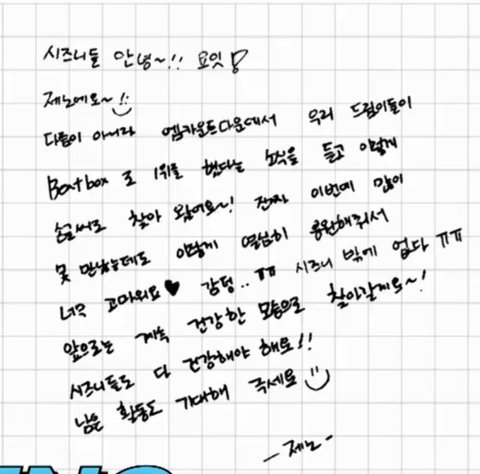 시즈니들 안녕~!! 요잇!
제노에요~!!
다름이 아니라 엠카운트다운에서 우리 드림이들이
Beatbox로 1위를 했다는 소식을 듣고 이렇게
손글씨로 찾아 왔어요~! 진짜 이번에 많이
못 만났는데도 이렇게 열심히 응원해줘서
너무 고마워요♥ 감덩..ㅠㅠ 시즈니 밖에 업다 ㅠㅠ
앞으로는 계속 건강한 모습으로 찾아갈게요~!
시즈니들도 다 건강해야 해요!!
남은 활동도 기대해 주세요
-제노-